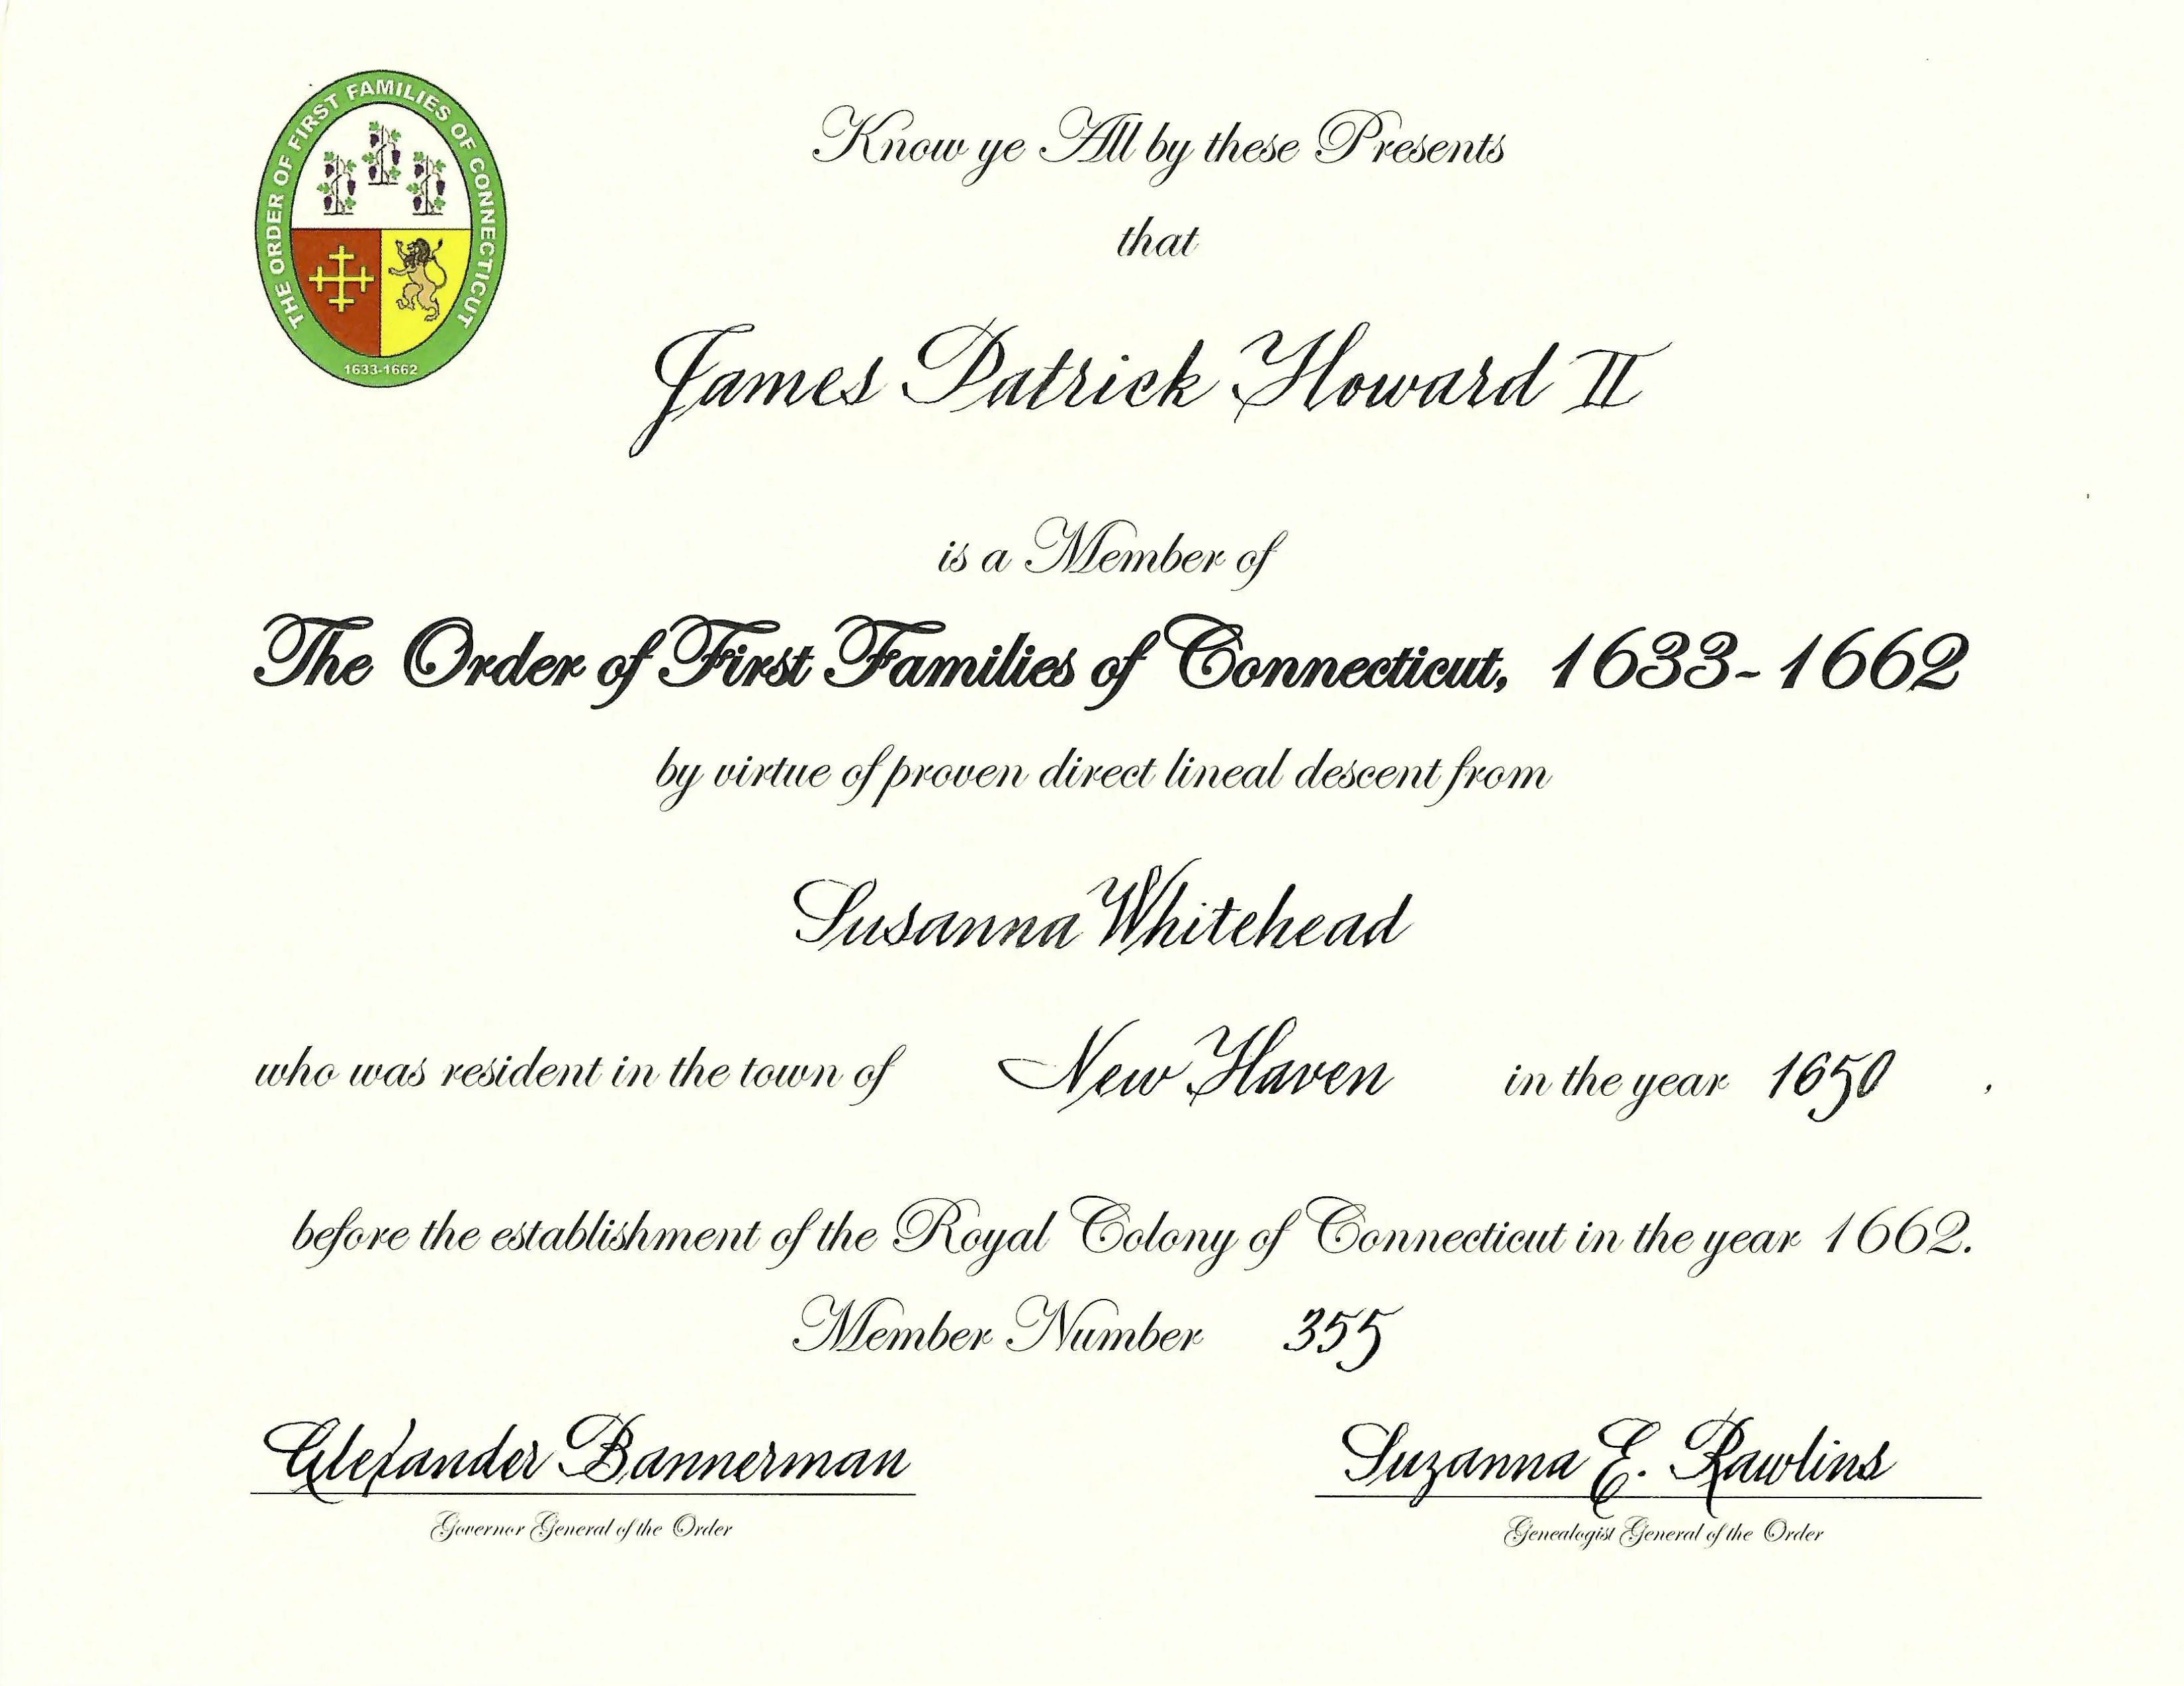 THE ORDER OF FIRST FAMILIES OF CONNECTICUT
1633-1662
Know ye All by these Presents
that
James Patrick Howard II
is a Member of
The Order of First Families of Connecticut, 1633-1662
by virtue of proven direct lineal descent from
Susanna Whitehead
who was resident in the town of New Haven in the year 1650 ,
before the establishment of the Royal Colony of Connecticut in the year 1662.
Member Number 355
Alexander Bannerman Suzanna E. Rawlins
Governor General of the Order Genealogist General of the Order